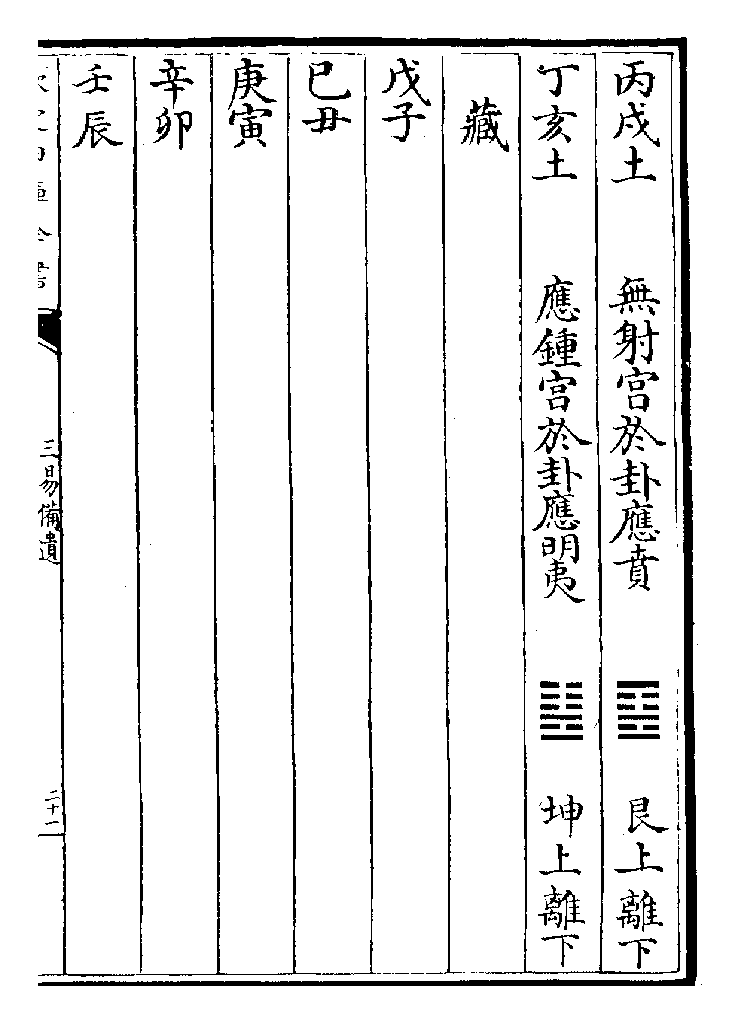 丙戌土 無射宮於卦應賁 ䷕ 艮上離下
丁亥土 應鍾宮於卦應明夷 ䷣ 坤上離下
藏
戊子
己丑
庚寅
辛卯
壬辰
三易備遺 二十一